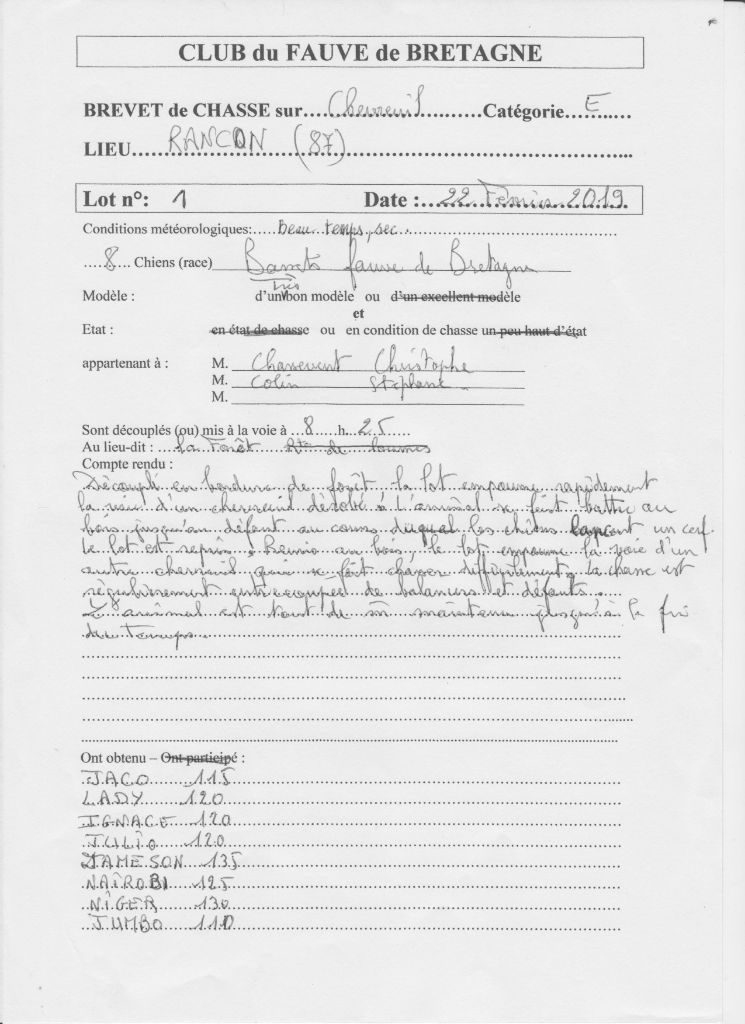 CLUB du FAUVE de BRETAGNE
BREVET de CHASSE sur....Chevreuil.........Catégorie..E.....
LIEU......RANCON (87)......
Lot n°: 1 Date :...22 Février 2019.
Conditions météorologiques:.....beau temps, sec.......
....8.... Chiens (race) Bassets fauve de Bretagne
Modèle : d'un très bon modèle ou d'un excellent modèle
et
Etat : en état de chasse ou en condition de chasse un peu haut d'état
appartenant à : M. Chassevent Christophe
M. Colin Stéphane
M.
Sont découplés (ou) mis à la voie à ...8....h...25.....
Au lieu-dit : ....La Forêt de
Compte rendu :
Découplé en bordure de forêt le lot empaume rapidement
la voie d'un chevreuil dérobé. L'animal se fait battre au
bois jusqu'au défaut au cours duquel les chiens lancent un cerf.
Le lot est repris. Remis au bois, le lot empaume la voie d'un
autre chevreuil qui se fait chasser difficilement. La chasse est
régulièrement entrecoupée de balancers et défauts.
L'animal est tout de m maintenu jusqu'à la fin
du temps.
Ont obtenu – Ont participé :
JACO 115
LADY 120
IGNACE 120
JULIO 120
JAMESON 135
NAÏROBI 125
NIGER 130
JUMBO 110